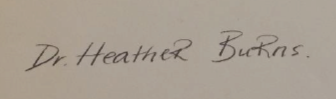 Dr. Heather Burns.